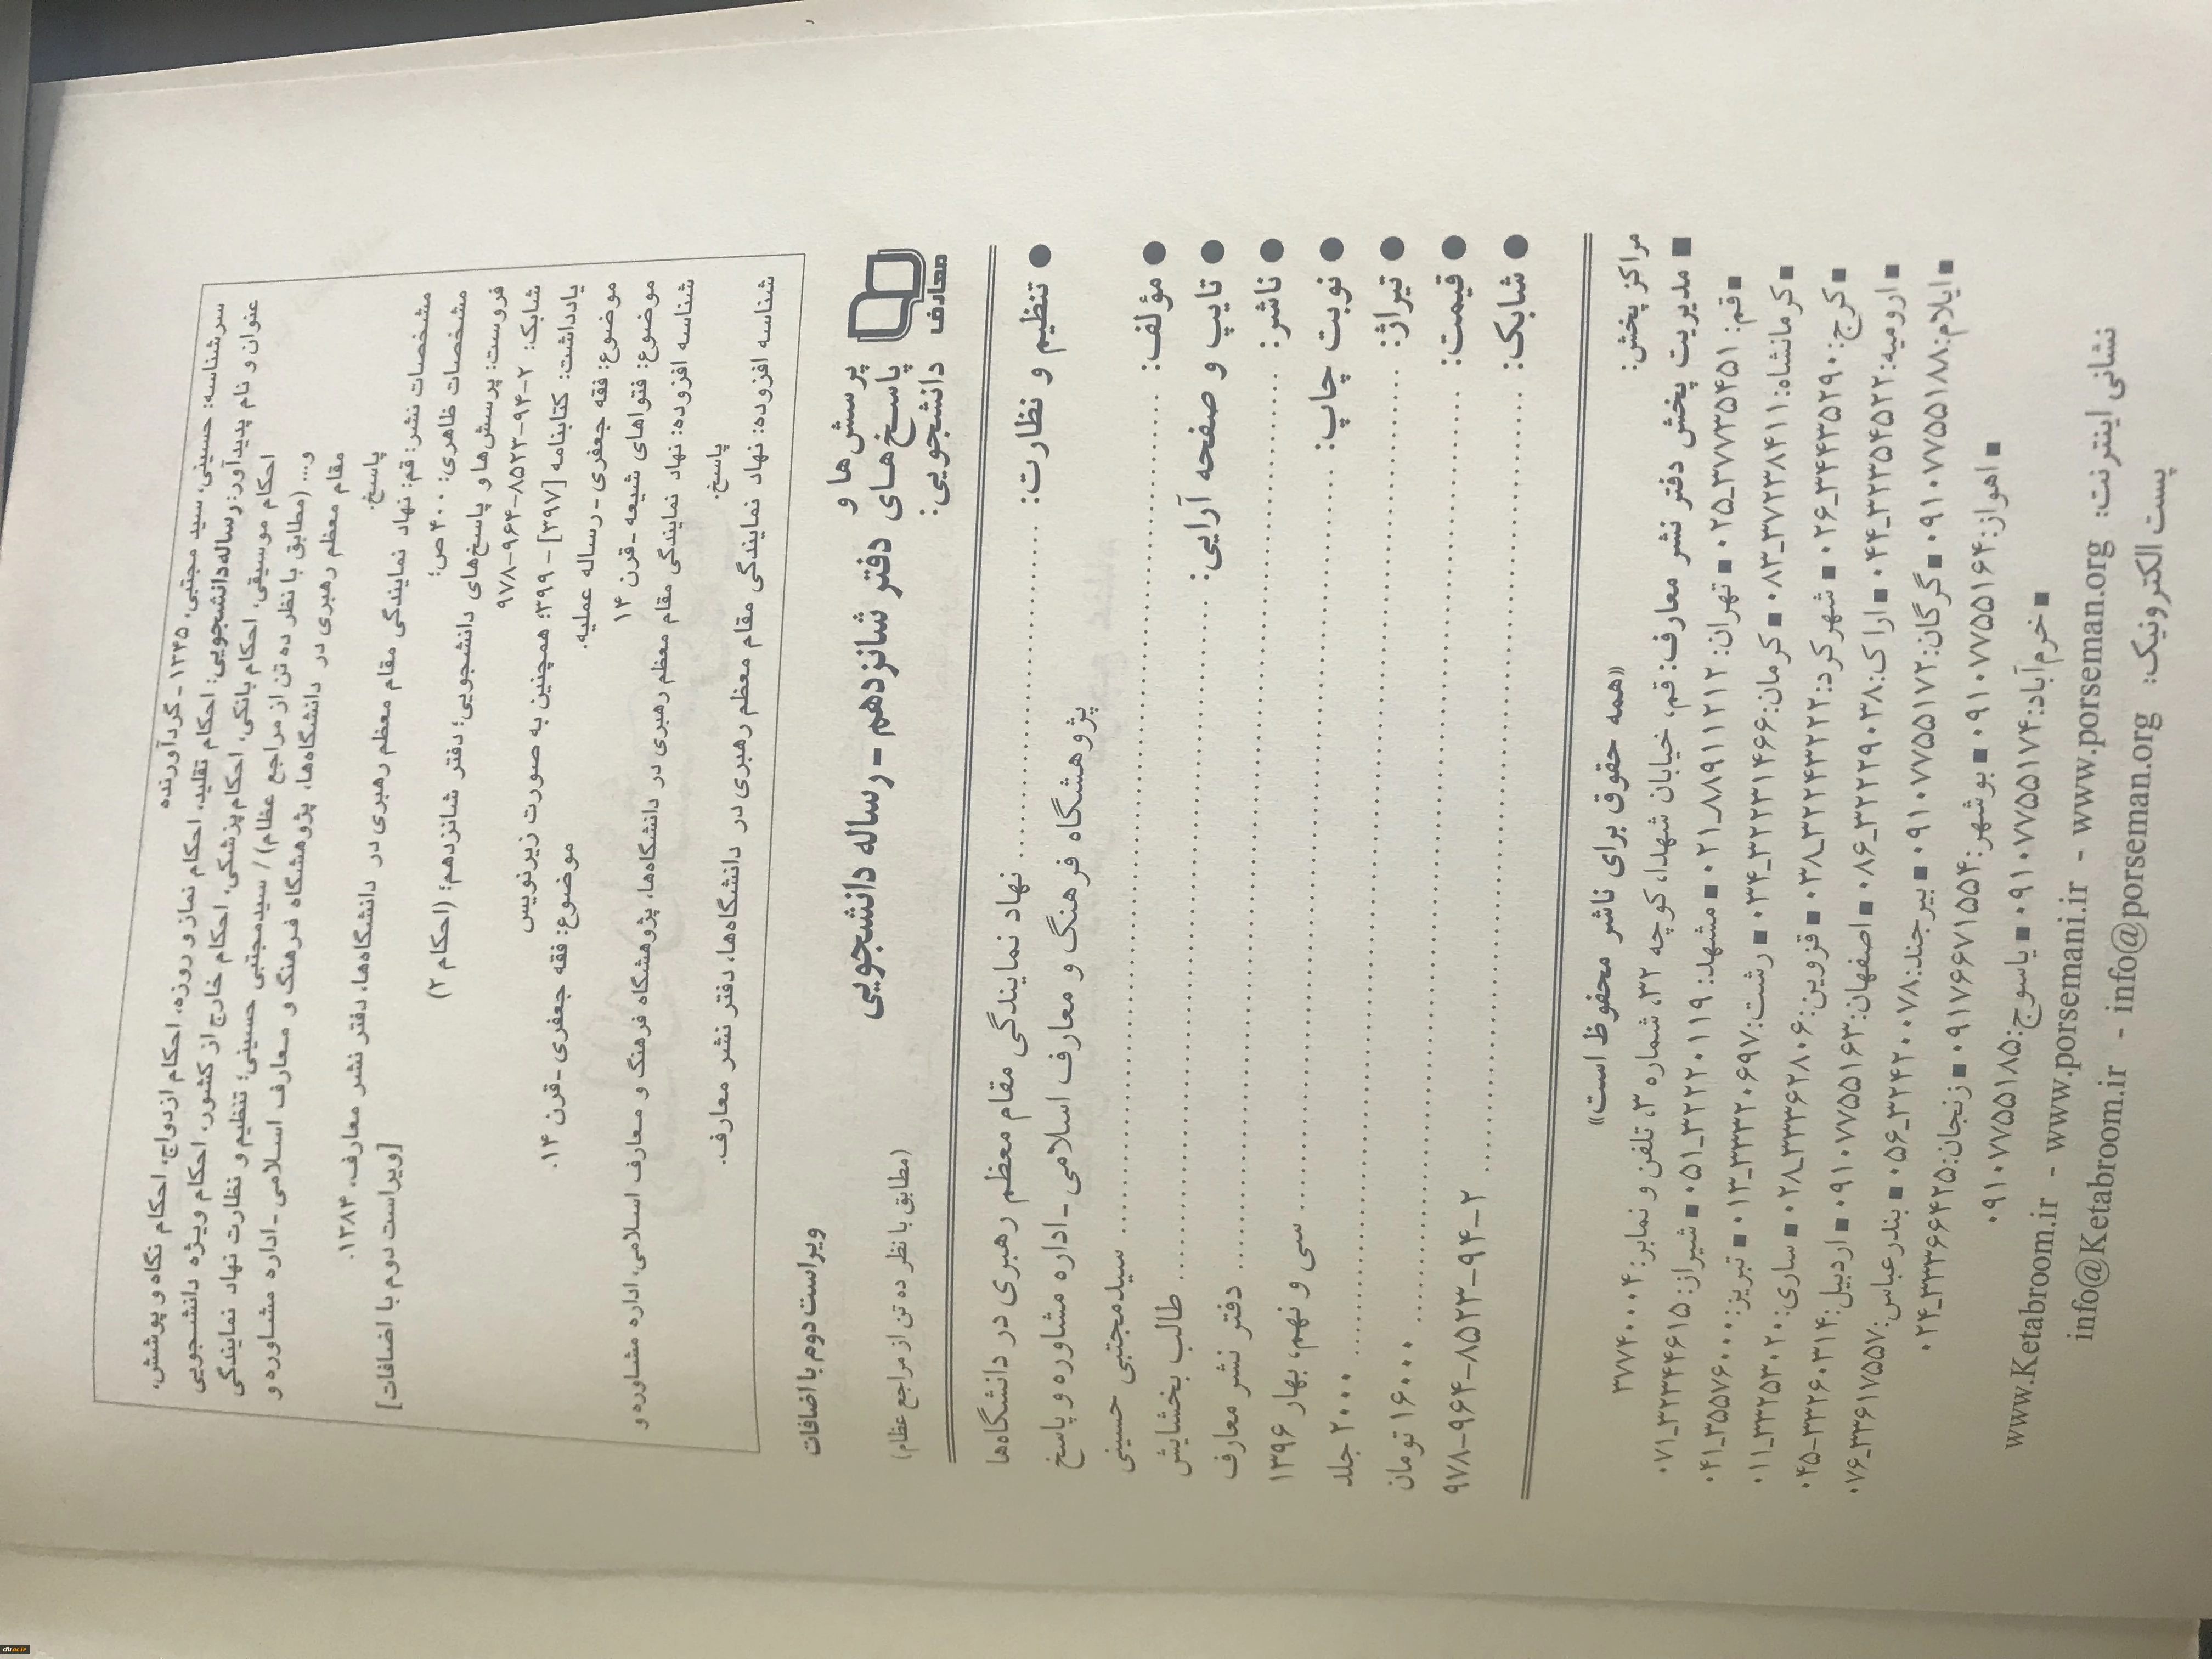 سرشناسه: حسینی، سید مجتبی، ۱۳۴۵ - گردآورنده
عنوان و نام پدیدآور: رساله دانشجویی: احکام تقلید، احکام نماز و روزه، احکام ازدواج، احکام نگاه و پوشش،
احکام موسیقی، احکام بانکی، احکام پزشکی، احکام خارج از کشور، احکام ویژه دانشجویی
و... (مطابق با نظر ده تن از مراجع عظام) / سیدمجتبی حسینی؛ تنظیم و نظارت نهاد نمایندگی
مقام معظم رهبری در دانشگاه‌ها، پژوهشگاه فرهنگ و معارف اسلامی - اداره مشاوره و
پاسخ.
مشخصات نشر: قم: نهاد نمایندگی مقام معظم رهبری در دانشگاه‌ها، دفتر نشر معارف، ۱۳۸۴.
مشخصات ظاهری: ۴۰۰ ص؛ [ویراست دوم با اضافات]
فروست: پرسش‌ها و پاسخ‌های دانشجویی؛ دفتر شانزدهم؛ (احکام ۲)
شابک: ۲-۹۴-۸۵۲۳-۹۶۴-۹۷۸
یادداشت: کتابنامه [۳۹۷] - ۳۹۹؛ همچنین به صورت زیرنویس
موضوع: فقه جعفری - رساله عملیه. موضوع: فقه جعفری - قرن ۱۴.
موضوع: فتواهای شیعه - قرن ۱۴
شناسه افزوده: نهاد نمایندگی مقام معظم رهبری در دانشگاه‌ها، پژوهشگاه فرهنگ و معارف اسلامی، اداره مشاوره و
پاسخ.
شناسه افزوده: نهاد نمایندگی مقام معظم رهبری در دانشگاه‌ها، دفتر نشر معارف.
ویراست دوم با اضافات
معارف
پرسش‌ها و
پاسخ‌های
دانشجویی:
دفتر شانزدهم - رساله دانشجویی
(مطابق با نظر ده تن از مراجع عظام)
● تنظیم و نظارت: ........ نهاد نمایندگی مقام معظم رهبری در دانشگاه‌ها
پژوهشگاه فرهنگ و معارف اسلامی - اداره مشاوره و پاسخ
● مؤلف: ........ سیدمجتبی حسینی
● تایپ و صفحه آرایی: ........ طالب بخشایش
● ناشر: ........ دفتر نشر معارف
● نوبت چاپ: ........ سی و نهم، بهار ۱۳۹۶
● تیراژ: ........ ۲۰۰۰ جلد
● قیمت: ........ ۱۶۰۰۰ تومان
● شابک: ........ ۲-۹۴-۸۵۲۳-۹۶۴-۹۷۸
«همه حقوق برای ناشر محفوظ است»
مراکز پخش:
■ مدیریت پخش دفتر نشر معارف: قم، خیابان شهدا، کوچه ۳۲، شماره ۳، تلفن و نمابر: ۳۷۷۴۰۰۰۴
■ قم: ۳۷۷۳۵۴۵۱_۰۲۵ ■ تهران: ۸۸۹۱۱۲۱۲_۰۲۱ ■ مشهد: ۳۲۲۲۰۱۱۹_۰۵۱ ■ شیراز: ۳۲۳۴۴۶۱۵_۰۷۱
■ کرمانشاه: ۳۷۲۳۸۴۱۱_۰۸۳ ■ کرمان: ۳۲۲۳۱۴۶۶_۰۳۴ ■ رشت: ۳۳۳۲۰۶۹۷_۰۱۳ ■ تبریز: ۳۵۵۷۶۰۰۰_۰۴۱
■ کرج: ۳۴۴۳۵۲۹۰_۰۲۶ ■ شهرکرد: ۳۲۲۴۳۲۲۲_۰۳۸ ■ قزوین: ۳۳۳۶۲۸۰۶_۰۲۸ ■ ساری: ۳۳۲۵۳۰۲۰_۰۱۱
■ ارومیه: ۳۲۳۵۴۵۲۲_۰۴۴ ■ اراک: ۳۲۲۲۹۰۳۸_۰۸۶ ■ اصفهان: ۰۹۱۰۷۷۵۵۱۶۳ ■ اردبیل: ۳۳۲۶۰۳۱۴-۰۴۵
■ ایلام: ۰۹۱۰۷۷۵۵۱۸۸ ■ گرگان: ۰۹۱۰۷۷۵۵۱۷۲ ■ بیرجند: ۳۲۴۲۰۰۷۸_۰۵۶ ■ بندرعباس: ۳۳۶۱۷۵۵۷_۰۷۶
■ اهواز: ۰۹۱۰۷۷۵۵۱۶۴ ■ بوشهر: ۰۹۱۷۶۶۷۱۵۵۴ ■ زنجان: ۳۳۳۶۶۴۲۵_۰۲۴
■ خرم‌آباد: ۰۹۱۰۷۷۵۵۱۷۴ ■ یاسوج: ۰۹۱۰۷۷۵۵۱۸۵
نشانی اینترنت: www.Ketabroom.ir - www.porsemani.ir - www.porseman.org
پست الکترونیک: info@Ketabroom.ir - info@porseman.org
cfu.ac.ir